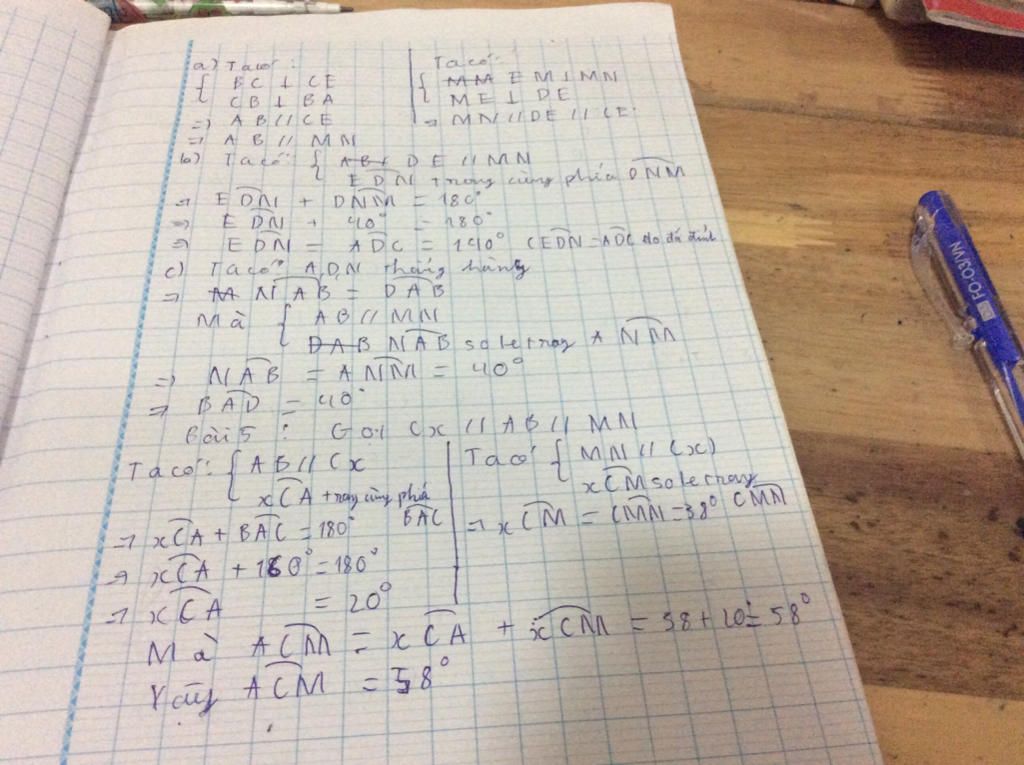 a) Ta có :
{ BC ⊥ CE
CB ⊥ BA
=> AB // CE
=> AB // MN
Ta có :
{ MM EM ⊥ MN
ME ⊥ DE
=> MN // DE // CE
b) Ta có : { AB + DE // MN
EDN trong cùng phía DNM
=> EDN + DNM = 180°
=> EDN + 40° = 180°
=> EDN = ADC = 140° (EDN = ADC do đđ đỉnh
c) Ta có : A, D, N thẳng hàng
=> M NAB = DAB
Mà { AB // MN
DAB NAB so le trong ANM
=> NAB = ANM = 40°
=> BAD = 40°
Bài 5 : Gọi Cx // AB // MN
Ta có : { AB // Cx
xCA trong cùng phía
BAC
=> xCA + BAC = 180°
=> xCA + 160° = 180°
=> xCA = 20°
Ta có { MN // Cx)
xCM so le trong
CMN
=> xCM = CMN = 38°
Mà ACM = xCA + xCM = 38 + 20 = 58°
Vậy ACM = 58°
FO-03/VN